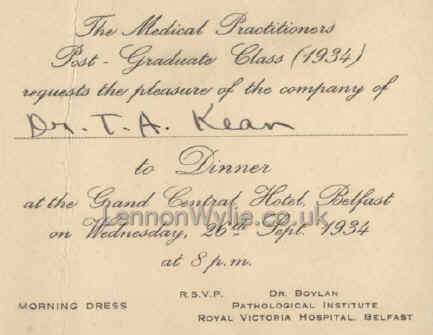 The Medical Practitioners
Post-Graduate Class (1934)
requests the pleasure of the company of
Dr. T. A. Kean
to Dinner
at the Grand Central Hotel, Belfast
LennonWylie.co.uk
on Wednesday, 26th Sept. 1934
at 8 p.m.
MORNING DRESS
R.S.V.P. DR. BOYLAN
PATHOLOGICAL INSTITUTE
ROYAL VICTORIA HOSPITAL, BELFAST